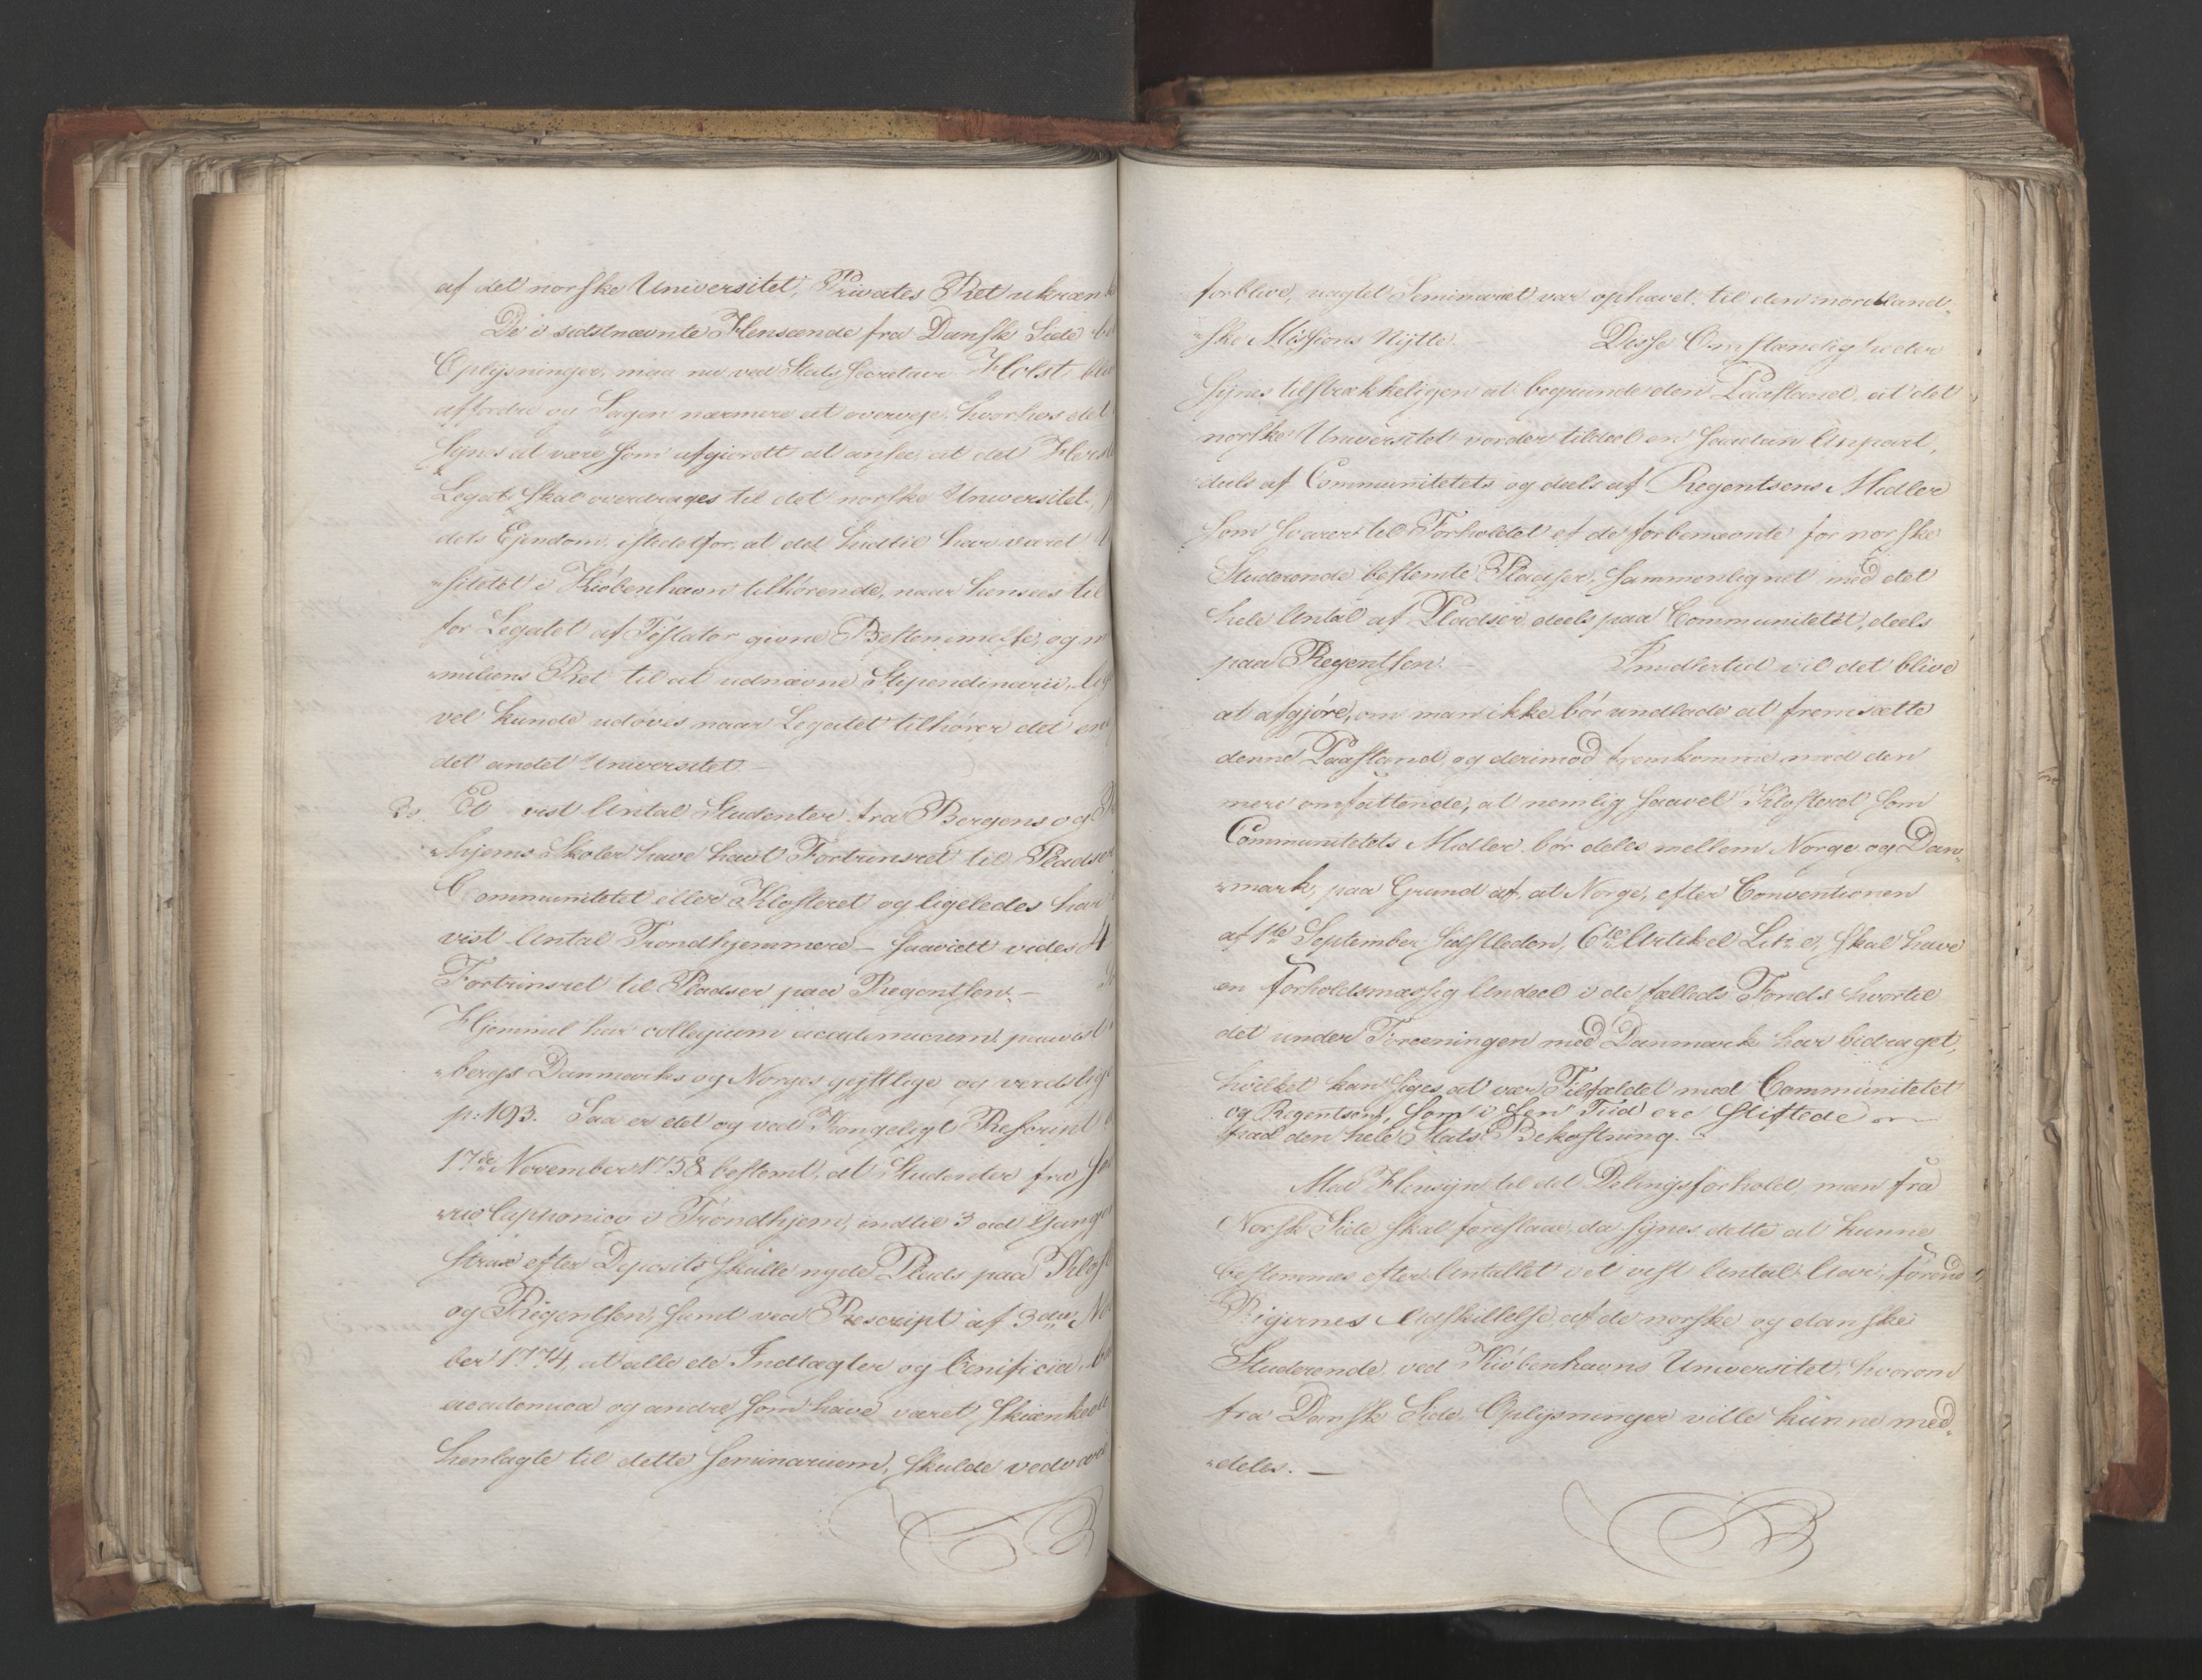 af det norske Universitet, Privates Ret ukrænk
De i sidstnævnte Henseende fra Dansk Side
Oplysninger, maa nu ved Stats Secretair Holst
affordre og Sagen nærmere at overveje, hvorhos det
synes at være som afgiordt at ansee, at det
Legat skal overdrages til det norske Universitet,
dets Ejendom, istedetfor, at det hidtil har været
"sitetet i Kiøbenhavn tilhørende, naar hensees til
for Legatet af Testator givne Bestemmelse, og
"miliens Ret til at udnævne Stipendiarii,
vel kunde udøves naar Legatet tilhører det
det andet Universitet —
Et vist Antal Studenter fra Bergens og
"hjems Skoler have havt Fortrinsret til Pladser
Communitetet eller Klosteret og ligeledes har
vist Antal Trondhjemmere — saavidt vides 4
Fortrinsret til Pladser paa Regentsen. —
Hjemmel har collegium academicum paavist
"bergs Danmarks og Norges gejstlige og verdslige
p: 193. Saa er det og ved Kongeligt Rescript
17de November 1758 bestemt, at Studenter fra
"rio Lapponico i Trondhjem, indtil 3 ad Gangen
strax efter Deposits skulle nyde Plads paa
og Regentsen, samt ved Rescript af 3die
ber 1774, at alle de Indtægter og Benificia,
academica og andre som have været skienkede
henlagte til dette Seminarium, skulde vedvare
forblive, uagtet Seminariet var ophævet, til den nordland-
"ske Missions Nytte. — Disse Omstændigheder
synes tilstrækkeligen at begrunde den Paastand, at det
norske Universitet vorder tildeel en saadan Anpart,
deels af Communitetets og deels af Regentsens Midler
som svarer til Forholdet af de forbenævnte for norske
Studerende bestemte Pladser, sammenlignet med det
hele Antal af Pladser, deels paa Communitetet, deels
paa Regentsen. — Imidlertid vil det blive
at afgjøre, om man ikke bør undlade at fremsætte
denne Paastand, og derimod fremkomme med den
mere omfattende, at nemlig saavel Klosteret som
Communitetets Midler bør deles mellem Norge og Dan-
"mark, paa Grund af, at Norge, efter Conventionen
af 1ste September sidstleden, 6te Artikel Litr e, skal have
en forholdsmæssig Andeel i de fælleds Fonds hvortil
det under Foreeningen med Danmark har bidraget,
hvilket kan siges at være Tilfældet med Communitetet
og Regentsen, som i sen Tiid ere stiftede
paa den hele Stats Bekostning. —
Med Hensyn til det Delingsforhold, man fra
Norsk Side skal foreslaae, da synes dette at kunne
bestemmes efter Antallet i et vist Antal Aar, førend
Rigernes Adskillelse, af de norske og danske
Studerende ved Kiøbenhavns Universitet, hvorom
fra Dansk Side Oplysninger ville kunne med-
"deles. —